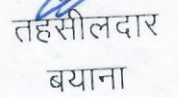 तहसीलदार
बयाना